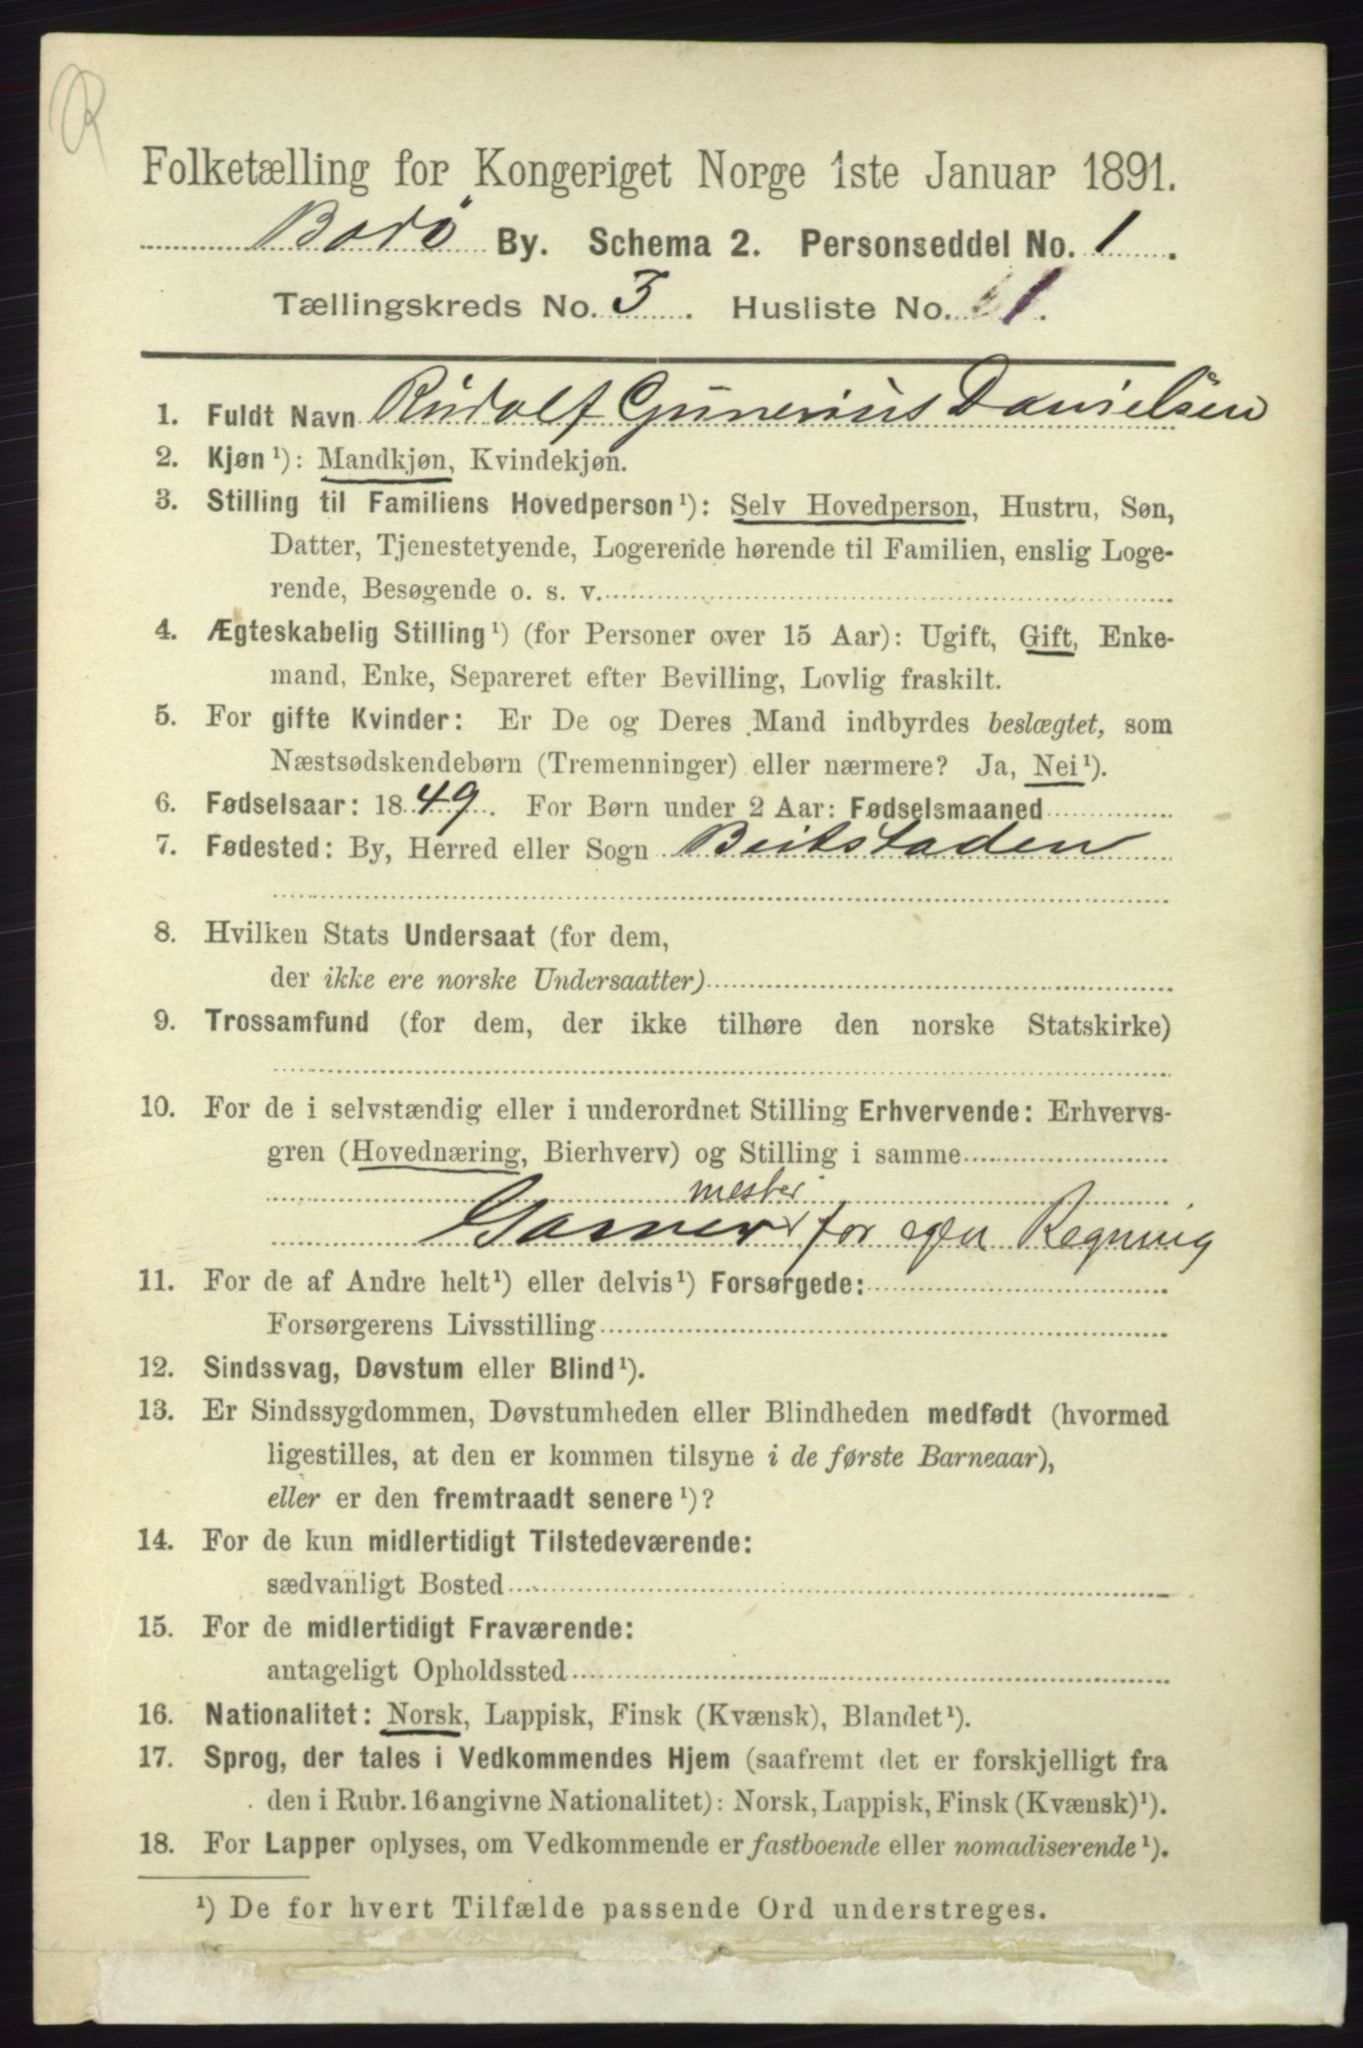 R
Folketælling for Kongeriget Norge 1ste Januar 1891.
Bodø By. Schema 2. Personseddel No. 1.
Tællingskreds No. 3. Husliste No. 1.
1. Fuldt Navn Rudolf Gunerius Danielsen
2. Kjøn¹): Mandkjøn, Kvindekjøn.
3. Stilling til Familiens Hovedperson¹): Selv Hovedperson, Hustru, Søn,
Datter, Tjenestetyende, Logerende hørende til Familien, enslig Loge-
rende, Besøgende o. s. v.
4. Ægteskabelig Stilling¹) (for Personer over 15 Aar): Ugift, Gift, Enke-
mand, Enke, Separeret efter Bevilling, Lovlig fraskilt.
5. For gifte Kvinder: Er De og Deres Mand indbyrdes beslægtet, som
Næstsødskendebørn (Tremenninger) eller nærmere? Ja, Nei¹).
6. Fødselsaar: 1849. For Børn under 2 Aar: Fødselsmaaned
7. Fødested: By, Herred eller Sogn Beitstaden
8. Hvilken Stats Undersaat (for dem,
der ikke ere norske Undersaatter)
9. Trossamfund (for dem, der ikke tilhøre den norske Statskirke)
10. For de i selvstændig eller i underordnet Stilling Erhvervende: Erhvervs-
gren (Hovednæring, Bierhverv) og Stilling i samme
mester
Garver for egen Regning
11. For de af Andre helt¹) eller delvis¹) Forsørgede:
Forsørgerens Livsstilling
12. Sindssvag, Døvstum eller Blind¹).
13. Er Sindssygdommen, Døvstumheden eller Blindheden medfødt (hvormed
ligestilles, at den er kommen tilsyne i de første Barneaar),
eller er den fremtraadt senere¹)?
14. For de kun midlertidigt Tilstedeværende:
sædvanligt Bosted
15. For de midlertidigt Fraværende:
antageligt Opholdssted
16. Nationalitet: Norsk, Lappisk, Finsk (Kvænsk), Blandet¹).
17. Sprog, der tales i Vedkommendes Hjem (saafremt det er forskjelligt fra
den i Rubr. 16 angivne Nationalitet): Norsk, Lappisk, Finsk (Kvænsk)¹).
18. For Lapper oplyses, om Vedkommende er fastboende eller nomadiserende¹).
¹) De for hvert Tilfælde passende Ord understreges.